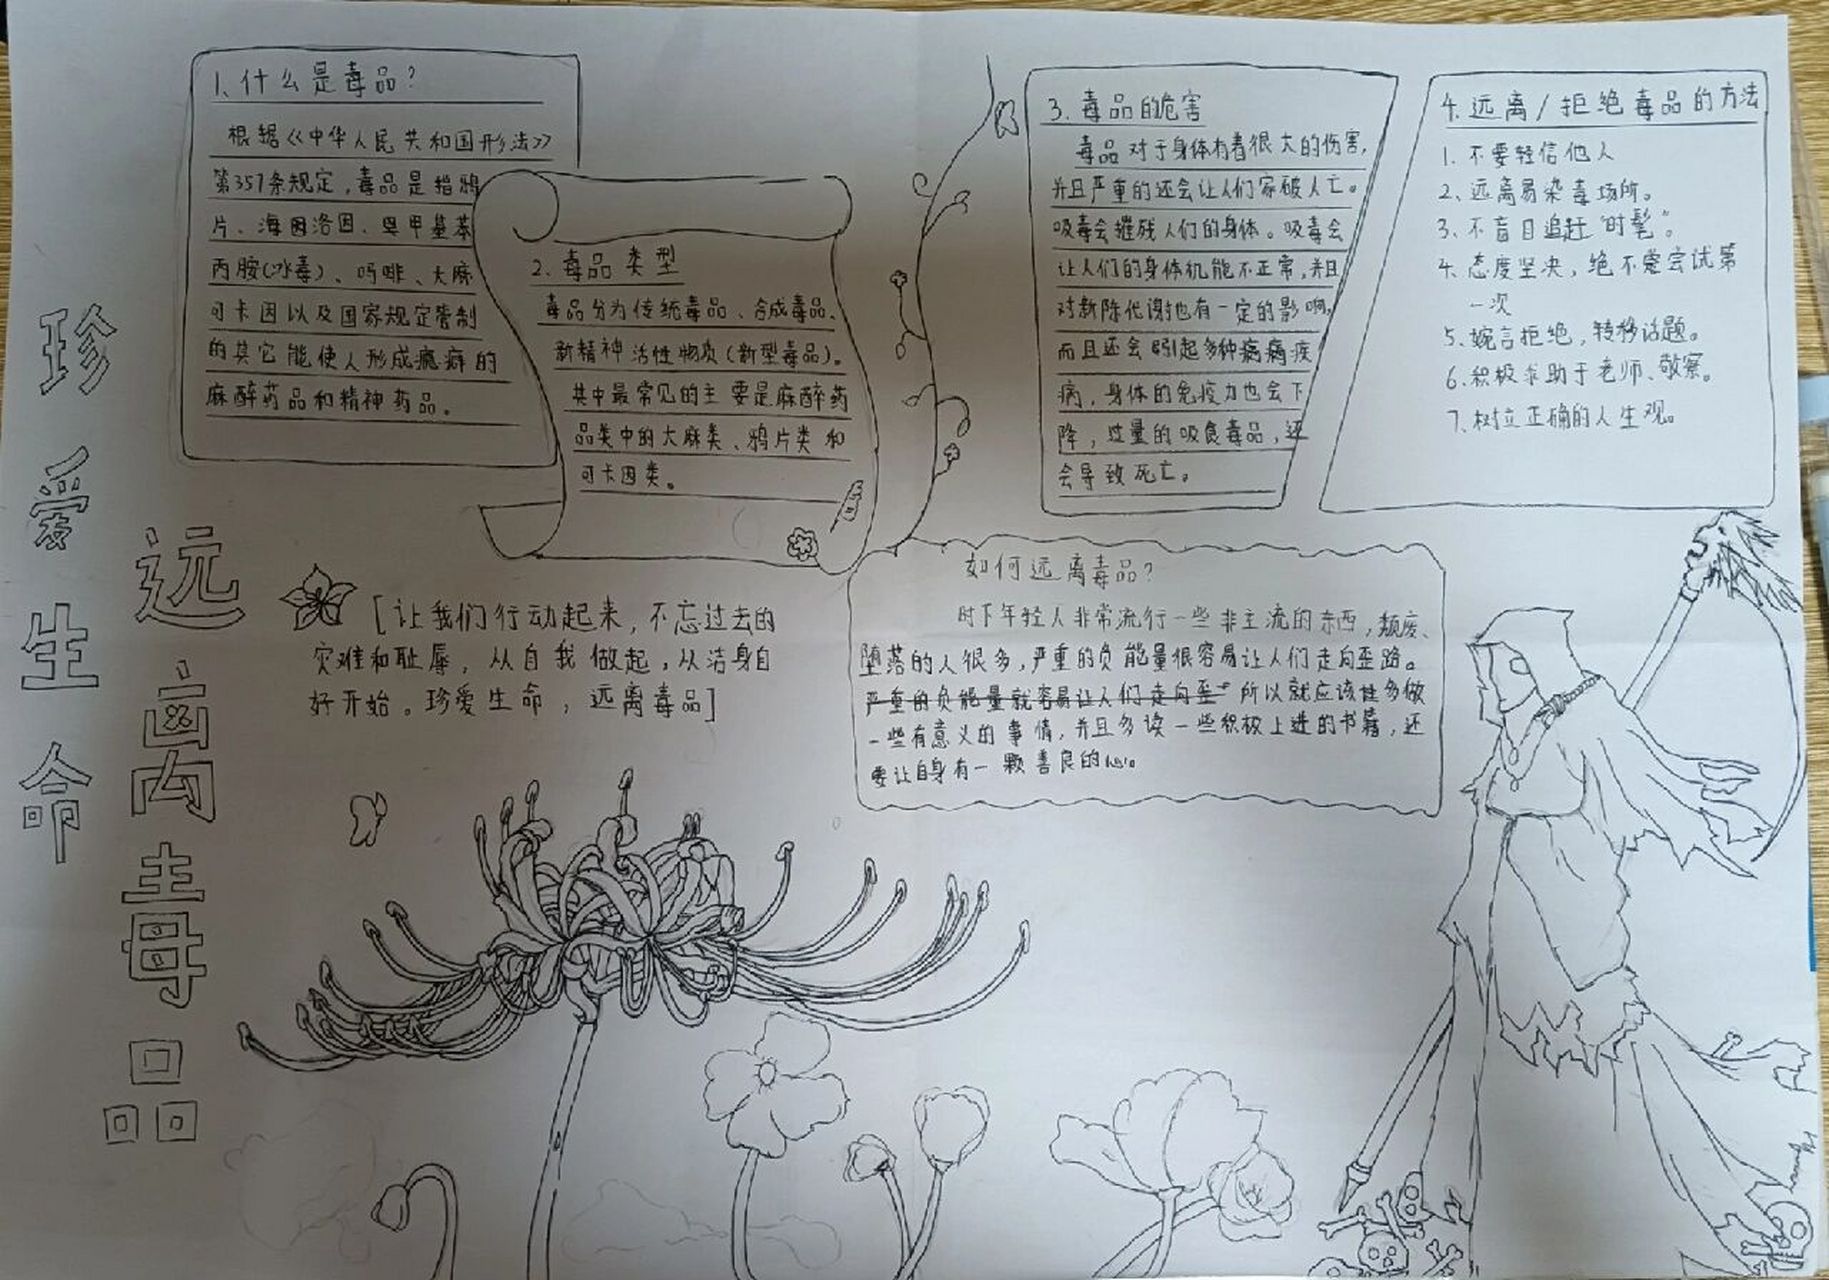 珍爱生命
远离毒品
1、什么是毒品?
根据《中华人民共和国形法》
第357条规定,毒品是指鸦
片、海因洛因、甲基苯
丙胺(冰毒)、吗啡、大麻
可卡因以及国家规定管制
的其它能使人形成瘾癖的
麻醉药品和精神药品。
2. 毒品类型
毒品分为传统毒品、合成毒品、
新精神活性物质(新型毒品)。
其中最常见的主要是麻醉药
品类中的大麻类、鸦片类和
可卡因类。
3. 毒品的危害
毒品对于身体有着很大的伤害,
并且严重的还会让人们家破人亡。
吸毒会摧残人们的身体。吸毒会
让人们的身体机能不正常,并且
对新陈代谢也有一定的影响,
而且还会引起多种疾
病,身体的免疫力也会下
降,过量的吸食毒品,还
会导致死亡。
4. 远离/拒绝毒品的方法
1. 不要轻信他人
2. 远离易染毒场所。
3. 不盲目追赶“时髦”。
4. 态度坚决,绝不尝试第
一次
5. 婉言拒绝,转移话题。
6. 积极求助于老师、警察。
7. 树立正确的人生观。
[让我们行动起来,不忘过去的
灾难和耻辱,从自我做起,从洁身自
好开始。珍爱生命,远离毒品]
如何远离毒品?
时下年轻人非常流行一些非主流的东西,颓废、
堕落的人很多,严重的负能量很容易让人们走向歪路。
严重的负能量就容易让人们走向歪 所以就应该多做
一些有意义的事情,并且多读一些积极上进的书籍,还
要让自身有一颗善良的心。